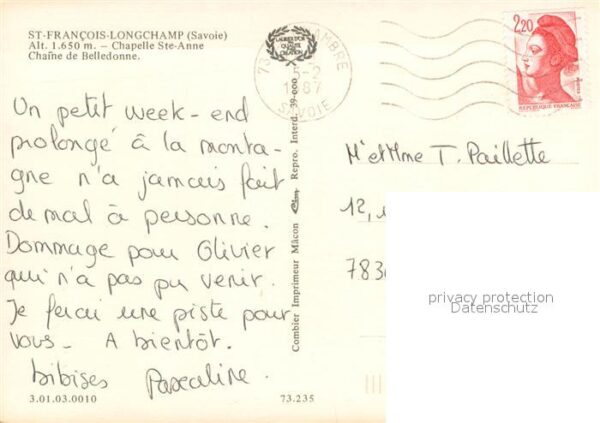 ST-FRANÇOIS-LONGCHAMP (Savoie)
Alt. 1.650 m. – Chapelle Ste-Anne
Chaîne de Belledonne.
Un petit week-end
prolongé à la monta-
gne n'a jamais fait
de mal à personne.
Dommage pour Olivier
qui n'a pas pu venir.
Je ferai une piste pour
vous. A bientôt.
bibises Pascaline.
3.01.03.0010
73.235
Combier Imprimeur Mâcon Cim Repro. Interd. 39-000
LABEL D'OR
DE QUALITÉ
DE CRÉATION
73
MBRE
-2
87
SAVOIE
2,20
REPUBLIQUE FRANÇAISE
M' et Mme T. Paillette
12,
783
privacy protection
Datenschutz